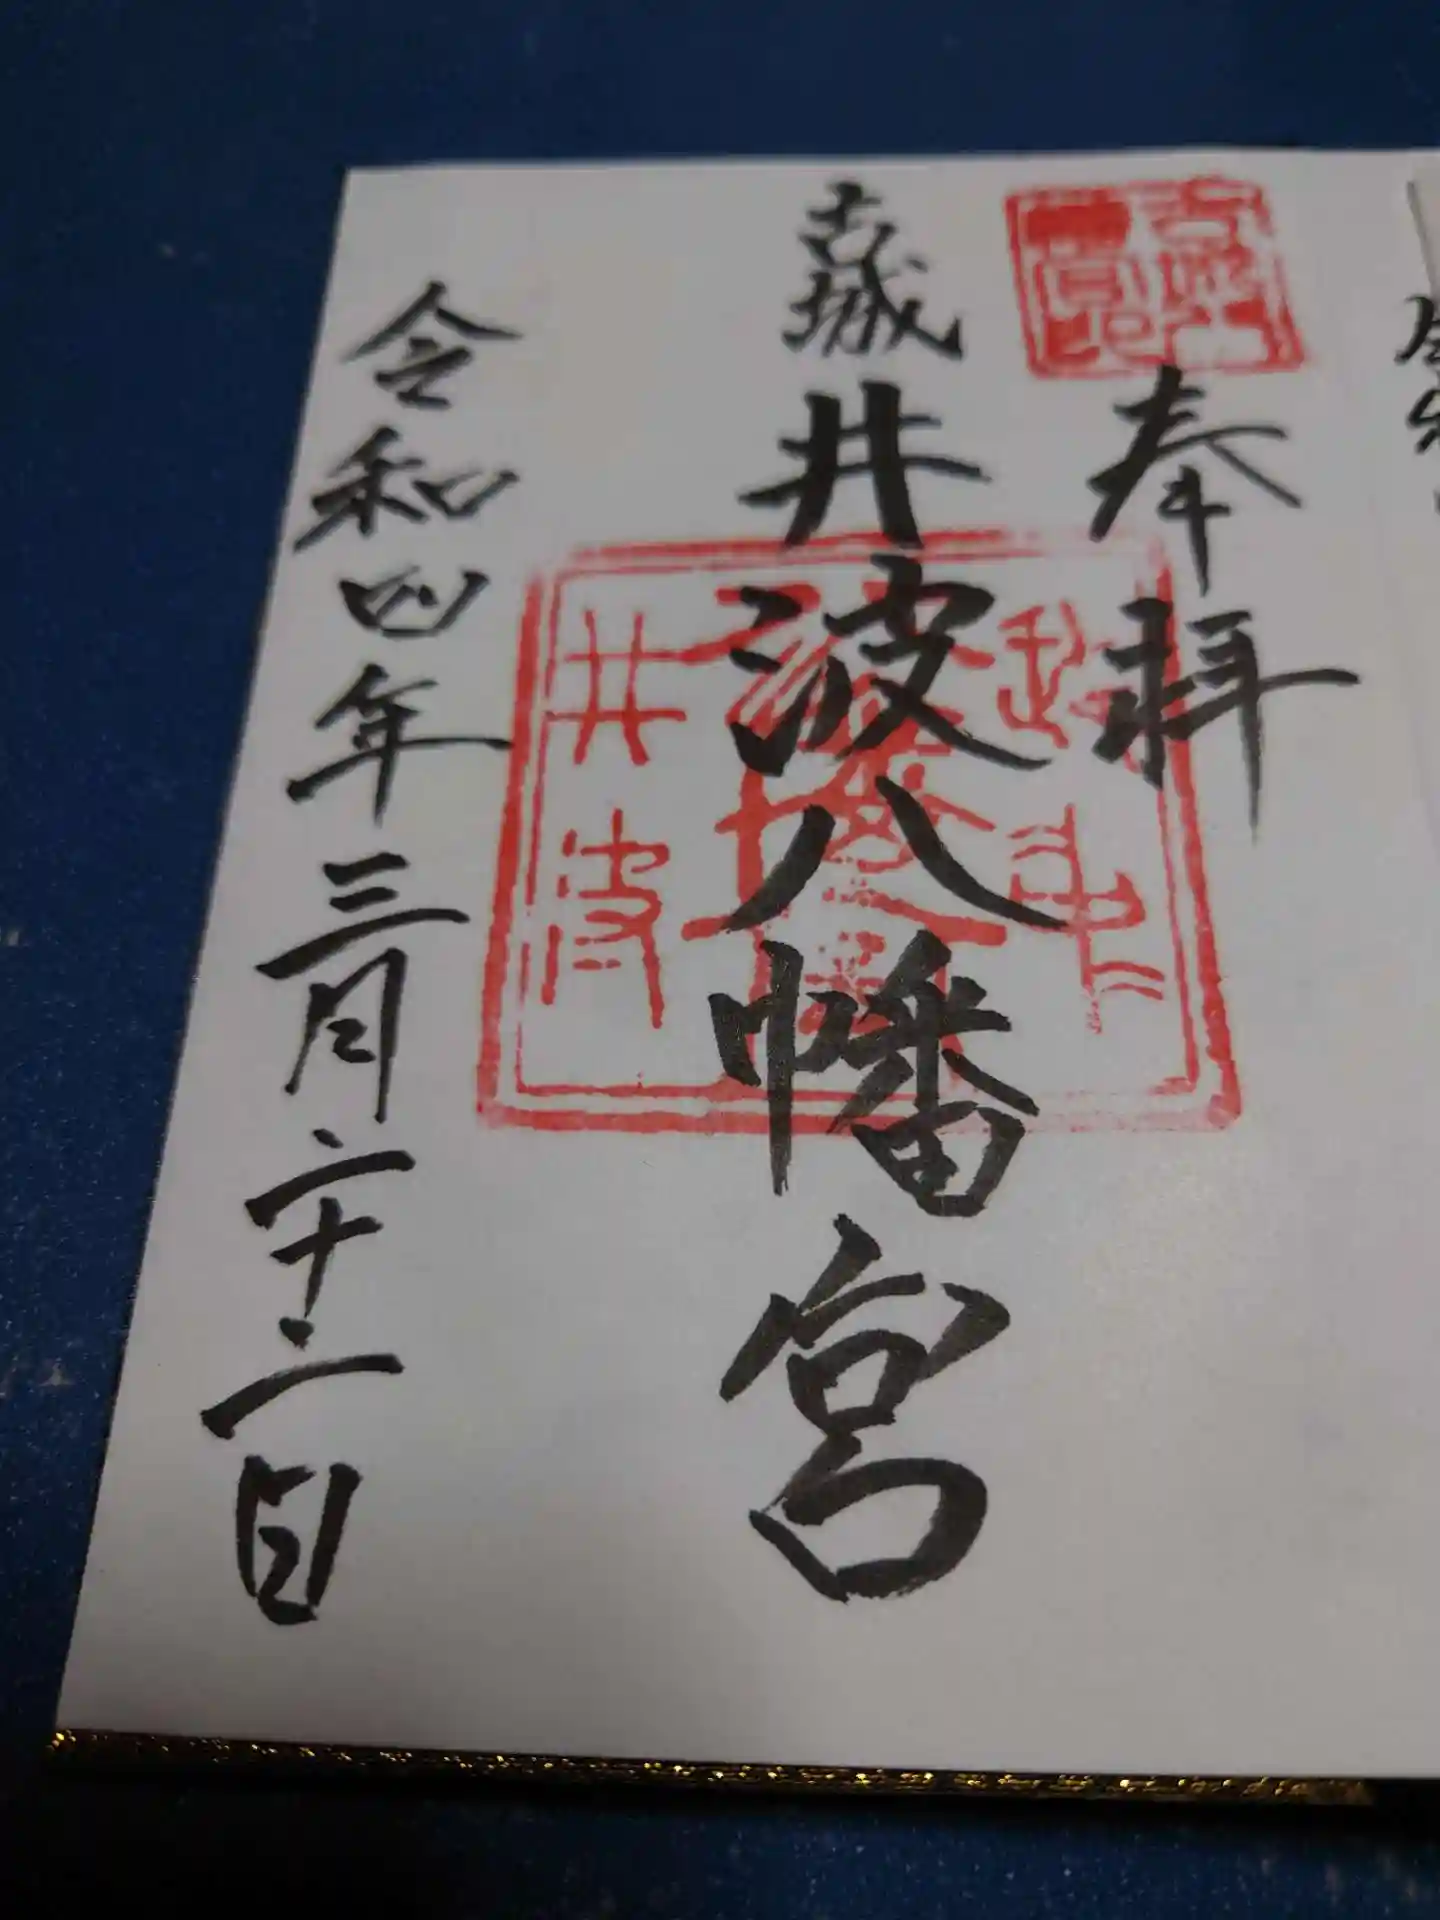 奉拝
古城
井波八幡宮
令和四年三月二十二日
越中
井波